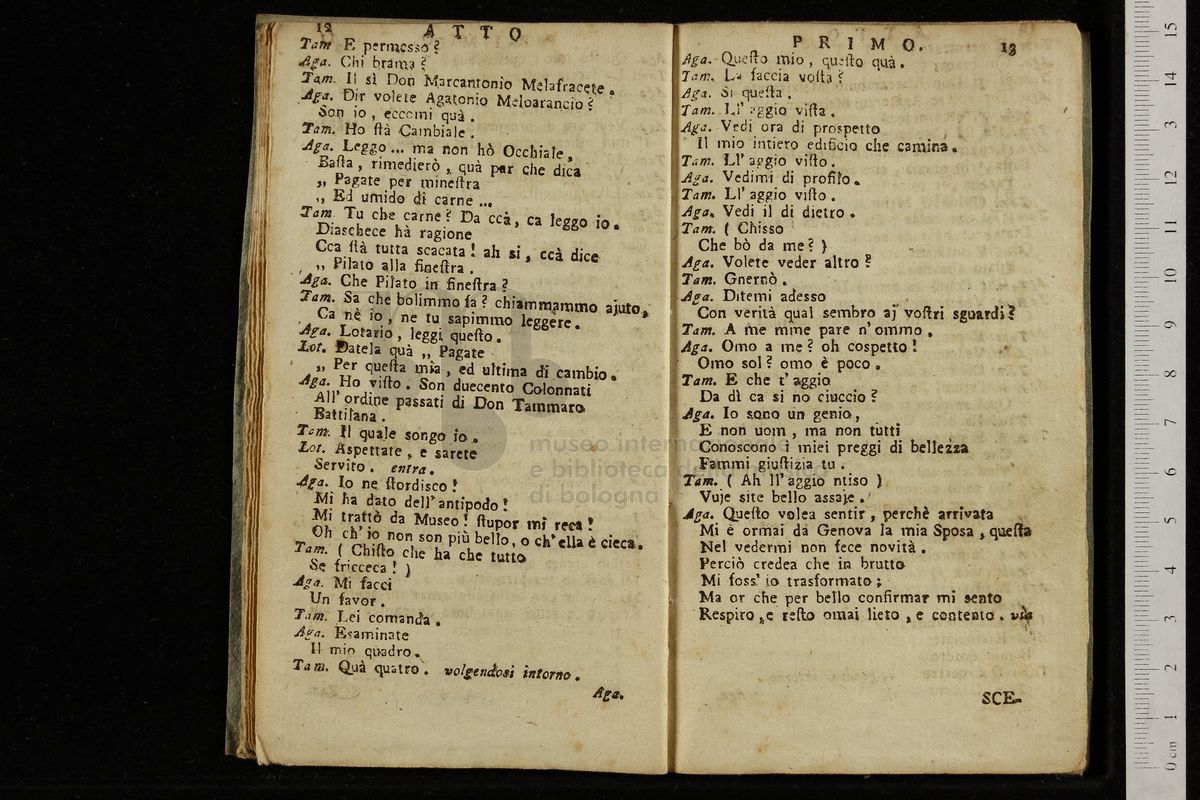 12 ATTO
Tam E permesso?
Aga. Chi brama?
Tam. Il sì Don Marcantonio Melafracete.
Aga. Dir volete Agatonio Meloarancio?
Son io, eccomi quà.
Tam. Ho ſtà Cambiale.
Aga. Leggo... ma non hò Occhiale,
Baſta, rimedierò, quà par che dica
„ Pagate per mineſtra
„ Ed umido di carne ...
Tam Tu che carne? Da ccà, ca leggo io.
Diaschece hà ragione
Cca ſtà tutta scacata! ah si, ccà dice
„ Pilato alla fineſtra.
Aga. Che Pilato in fineſtra?
Tam. Sa che bolimmo fa? chiammammo ajuto,
Ca nè io, ne tu sapimmo leggere.
Aga. Lotario, leggi queſto.
Lot. Datela quà „ Pagate
„ Per queſta mia, ed ultima di cambio.
Aga. Ho viſto. Son duecento Colonnati
All' ordine passati di Don Tammaro
Battilana.
Tam. Il quale songo io.
Lot. Aspettate, e sarete
Servito. entra.
Aga. Io ne ſtordisco!
Mi ha dato dell' antipodo!
Mi trattò da Museo! ſtupor mi reca!
Oh ch' io non son più bello, o ch' ella è cieca.
Tam. ( Chiſto che ha che tutto
Se fricceca! )
Aga. Mi facci
Un favor.
Tam. Lei comanda.
Aga. Esaminate
Il mio quadro.
Tam. Quà quatro. volgendosi intorno.
Aga.
PRIMO. 13
Aga. Queſto mio, queſto quà.
Tam. La faccia voſta?
Aga. Si queſta.
Tam. Ll' aggio viſta.
Aga. Vedi ora di prospetto
Il mio intiero edificio che camina.
Tam. Ll' aggio viſto.
Aga. Vedimi di profilo.
Tam. Ll' aggio viſto.
Aga. Vedi il di dietro.
Tam. ( Chisso
Che bò da me? )
Aga. Volete veder altro?
Tam. Gnernò.
Aga. Ditemi adesso
Con verità qual sembro aj voſtri sguardi?
Tam. A me mme pare n' ommo.
Aga. Omo a me? oh cospetto!
Omo sol? omo è poco.
Tam. E che t' aggio
Da dì ca si no ciuccio?
Aga. Io sono un genio,
E non uom, ma non tutti
Conoscono i miei preggi di bellezza
Fammi giuſtizia tu.
Tam. ( Ah ll' aggio ntiso )
Vuje site bello assaje.
Aga. Queſto volea sentir, perchè arrivata
Mi è ormai da Genova la mia Sposa, queſta
Nel vedermi non fece novità.
Perciò credea che in brutto
Mi foss' io trasformato;
Ma or che per bello confirmar mi sento
Respiro, e reſto omai lieto, e contento. via
SCE-
museo internazionale
e biblioteca della musica
di bologna
0 cm 1 2 3 4 5 6 7 8 9 10 11 12 13 14 15